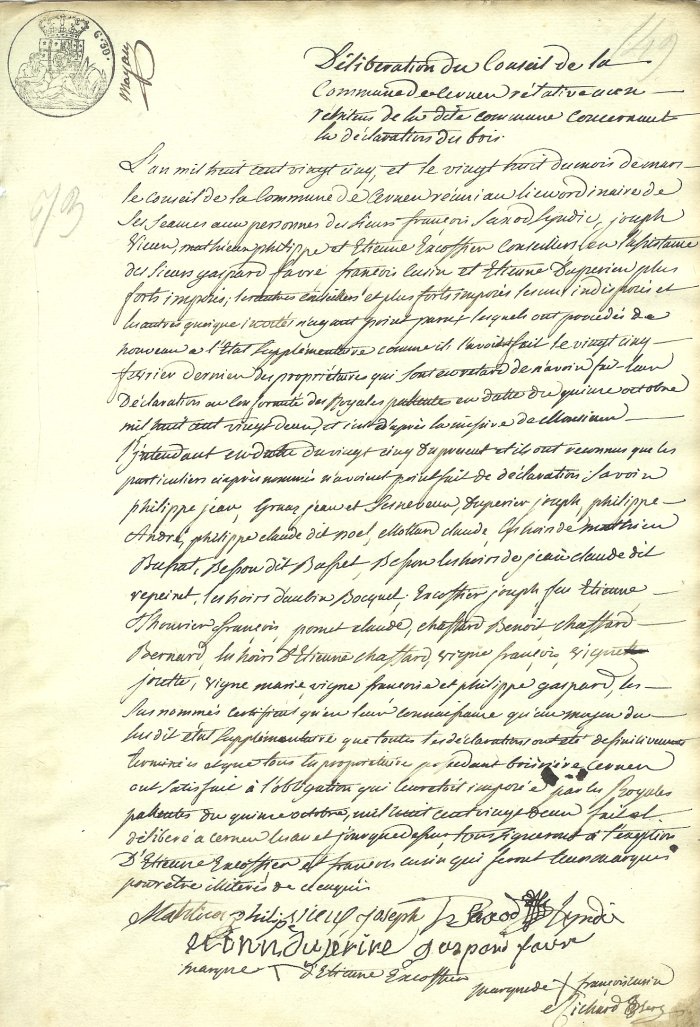 6·30·
149
Déliberation du Conseil de la
Commune de Cernex rélative aux
rétenteurs de la dite commune concernant
la déclaration des bois
L'an mil huit cent vingt cinq, et le vingt huit du mois de mars
le conseil de la Commune de Cernex réuni au lieu ordinaire de
ses seances aux personnes des sieurs françois Saxod Syndic, joseph
Vicux, mathieu philippe et Etienne Excoffier Conseillers en l'assistance
des sieurs gaspard favre françois Cusin et Etienne Duperier plus
forts imposés, les autres conseillers et plus forts imposés les uns indisposés et
les autres quoique invités n'ayant point paru, lesquels ont procédé de
nouveau a l'Etat Supplémentaire comme il l'avoit fait le vingt cinq
fevrier dernier des propriétaires qui sont en retard de n'avoir fait leur
Déclaration en Conformité des Royales patentes en datte du quinze octobre
mil huit cent vingt deux, et ce d'après la missive de Monsieur
l'jntendant en datte du vingt cinq du present et ils ont reconnus que les
particuliers ciaprès nommés n'avoient point fait de déclaration Savoir
philippe jean, jean et Duperier joseph, philippe
André, philippe claude dit noel, Mottan claude, les hoirs de mathieu
Bussat, Besson dit Basset, Besson les hoirs de jean claude dit
repeiret, les hoirs d'aubin Bocquet, Excoffier joseph feu Etienne
Thouvier françois pomet claude, chaffard Benoit chaffard
Bernard, les hoirs d'Etienne chaffard, vigne françois vigne
josette, vigne marie vigne françoise et philippe gaspard, les
sus nommés certifient qu'en leur connaissance qu'au moyen du
susdit état supplémentaire que toutes les déclarations ont été definitivement
terminées et que tous les propriétaires possedant bois rière Cernex
ont satisfait à l'obligation qui leur étoit imposée par les Royales
patentes du quinze octobre, mil huit cent vingt deux fait et
déliberé a cernex les an et jour que dessus, tous signeront à l'exception
D'Etienne Excoffier et françois cusin qui feront leurs marques
pour être illiterés de ce enquis
Mathieu philipe vicux joseph f. Saxod Syndic
etienne duperire gaspard favre
marque d'Etienne Excoffier
marque de X françois cusin